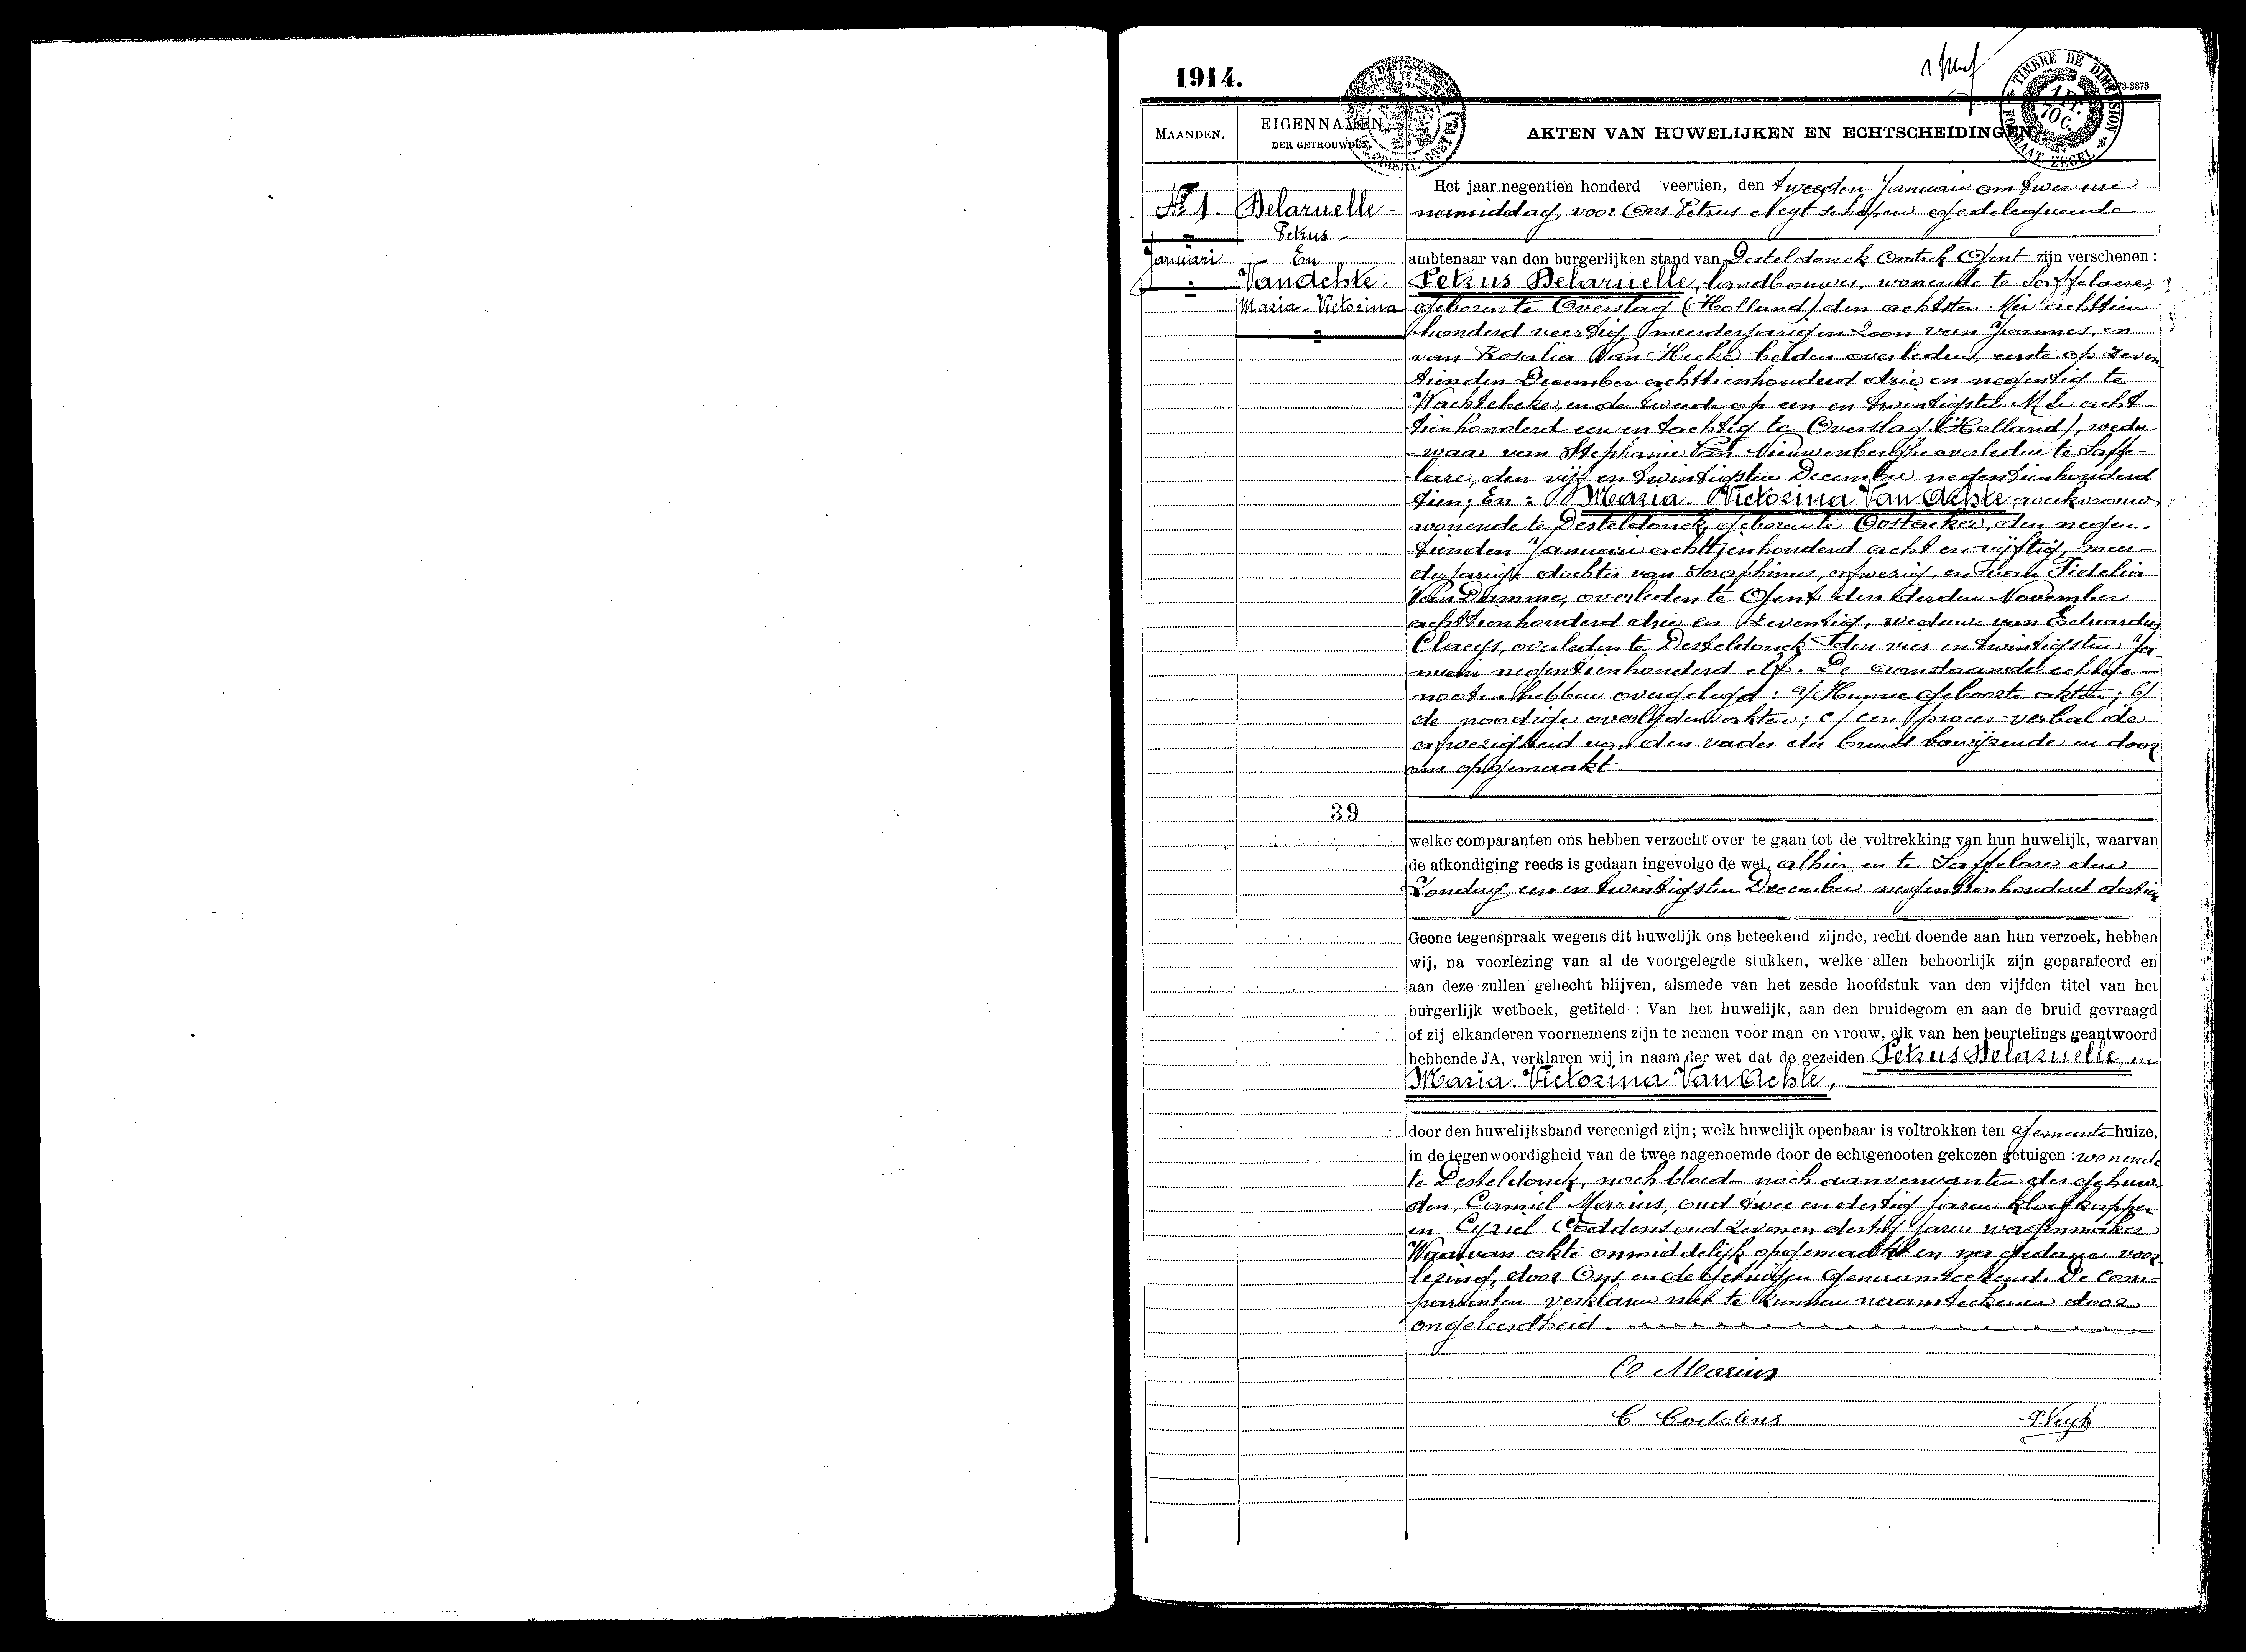 1914.
TIMBRE DE DIMENSION
FORMAAT ZEGEL
MAANDEN.
EIGENNAMEN
DER GETROUWDEN.
AKTEN VAN HUWELIJKEN EN ECHTSCHEIDINGEN
No 1.
Januari
Delaruelle
Petrus
En
VanAchte
Maria-Victorina
39
Het jaar negentien honderd veertien, den tweeden Januari om twee ure
namiddag, voor Ons Petrus Neyt schepen gedelegueerde
ambtenaar van den burgerlijken stand van Desteldonck Omtrek Gent zijn verschenen :
Petrus Delaruelle, landbouwer, wonende te Saffelaere,
geboren te Overslag (Holland) den achtsten Mei achttien
honderd veertig, meerderjarigen zoon van Joannes, en
van Rosalia Van Hecke beiden overleden, eerste op zeven
tienden December achttienhonderd drie en negentig te
Wachtebeke, en de tweede op een en twintigsten Mei acht
tienhonderd een en tachtig te Overslag (Holland), wedu-
waar van Stephanie Van Nieuwenberghe overleden te Saffe-
lare, den vijf en twintigsten December negentienhonderd
tien; En : Maria-Victorina Van Achte, werkvrouw
wonende te Desteldonck, geboren te Oostacker, den negen-
tienden Januari achttienhonderd acht en vijftig, meer-
derjarige dochter van Seraphinus, afwezig, en van Fidelia
Van Damme, overleden te Gent den derden November
achttienhonderd drie en zeventig, weduwe van Eduardus
Claeys, overleden te Desteldonck den vier en twintigsten Ja-
nuari negentienhonderd elf. De aanstaande echtge-
nooten hebben overgelegd : a/ Hunne geboorte akten; b/
de noodige overlijdensakten; c/ een proces-verbal de
afwezigheid van den vader der bruid bewijzende en door
ons opgemaakt
welke comparanten ons hebben verzocht over te gaan tot de voltrekking van hun huwelijk, waarvan
de afkondiging reeds is gedaan ingevolge de wet, alhier en te Saffelare den
Zondag een en twintigsten December negentienhonderd dertien
Geene tegenspraak wegens dit huwelijk ons beteekend zijnde, recht doende aan hun verzoek, hebben
wij, na voorlezing van al de voorgelegde stukken, welke allen behoorlijk zijn geparafeerd en
aan deze zullen gehecht blijven, alsmede van het zesde hoofdstuk van den vijfden titel van het
burgerlijk wetboek, getiteld : Van het huwelijk, aan den bruidegom en aan de bruid gevraagd
of zij elkanderen voornemens zijn te nemen voor man en vrouw, elk van hen beurtelings geantwoord
hebbende JA, verklaren wij in naam der wet dat de gezeiden Petrus Delaruelle, en
Maria-Victorina Van Achte,
door den huwelijksband vereenigd zijn; welk huwelijk openbaar is voltrokken ten Gemeentehuize,
in de tegenwoordigheid van de twee nagenoemde door de echtgenooten gekozen getuigen : wonende
te Desteldonck, noch bloed- noch aanverwanten der gehuw-
den, Camiel Marius, oud twee en dertig jaren kloefkapper
en Cyriel Coddens oud zeven en dertig jaren wagenmaker
Waarvan akte onmiddelijk opgemaakt en na gedane voor
lezing, door Ons en de getuigen genaamteekend. De com-
paranten verklaren niet te kunnen naamteekenen door
ongeleerdheid.
C. Marius
C Coddens
P. Neyt